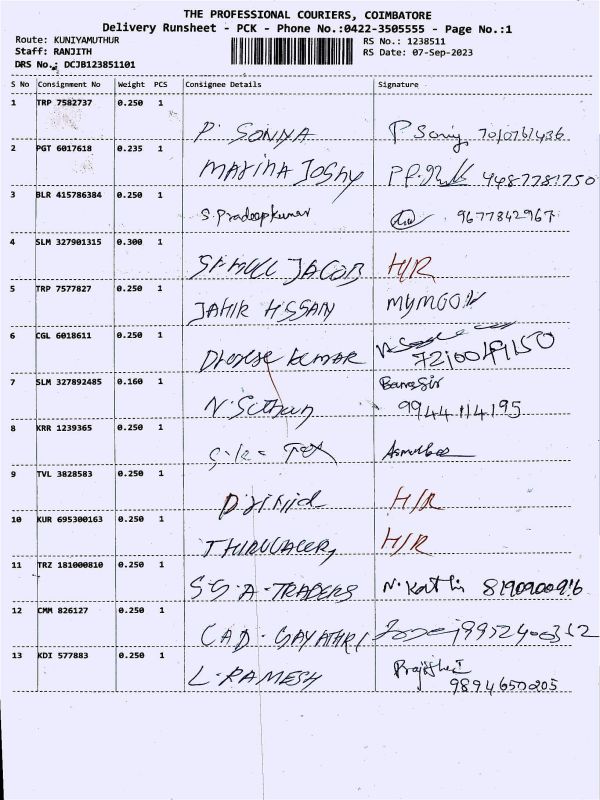 THE PROFESSIONAL COURIERS, COIMBATORE
Delivery Runsheet - PCK - Phone No.:0422-3505555 - Page No.:1
Route: KUNIYAMUTHUR RS No.: 1238511
Staff: RANJITH RS Date: 07-Sep-2023
DRS No.: DCJB123851101
S No Consignment No Weight PCS Consignee Details Signature
1 TRP 7582737 0.250 1
P. SONNA 7010767436
2 PGT 6017618 0.235 1
MARINA JOSHY 9487781750
3 BLR 415786384 0.250 1
S. Pradeepkumar 9677842967
4 SLM 327901315 0.300 1
JACOB H/R
5 TRP 7577827 0.250 1
JAHIR HSSAIN MYMOON
6 CGL 6018611 0.250 1
KUMAR
7 SLM 327892485 0.160 1
N. 9944114195
8 KRR 1239365 0.250 1
TEX
9 TVL 3828583 0.250 1
H/R
10 KUR 695300163 0.250 1
H/R
11 TRZ 181000810 0.250 1
S.S.A-TRADERS N. 
12 CMM 826127 0.250 1
CAD. GAYATHRI 9952400352
13 KDI 577883 0.250 1
L. RAMESH
9894650205